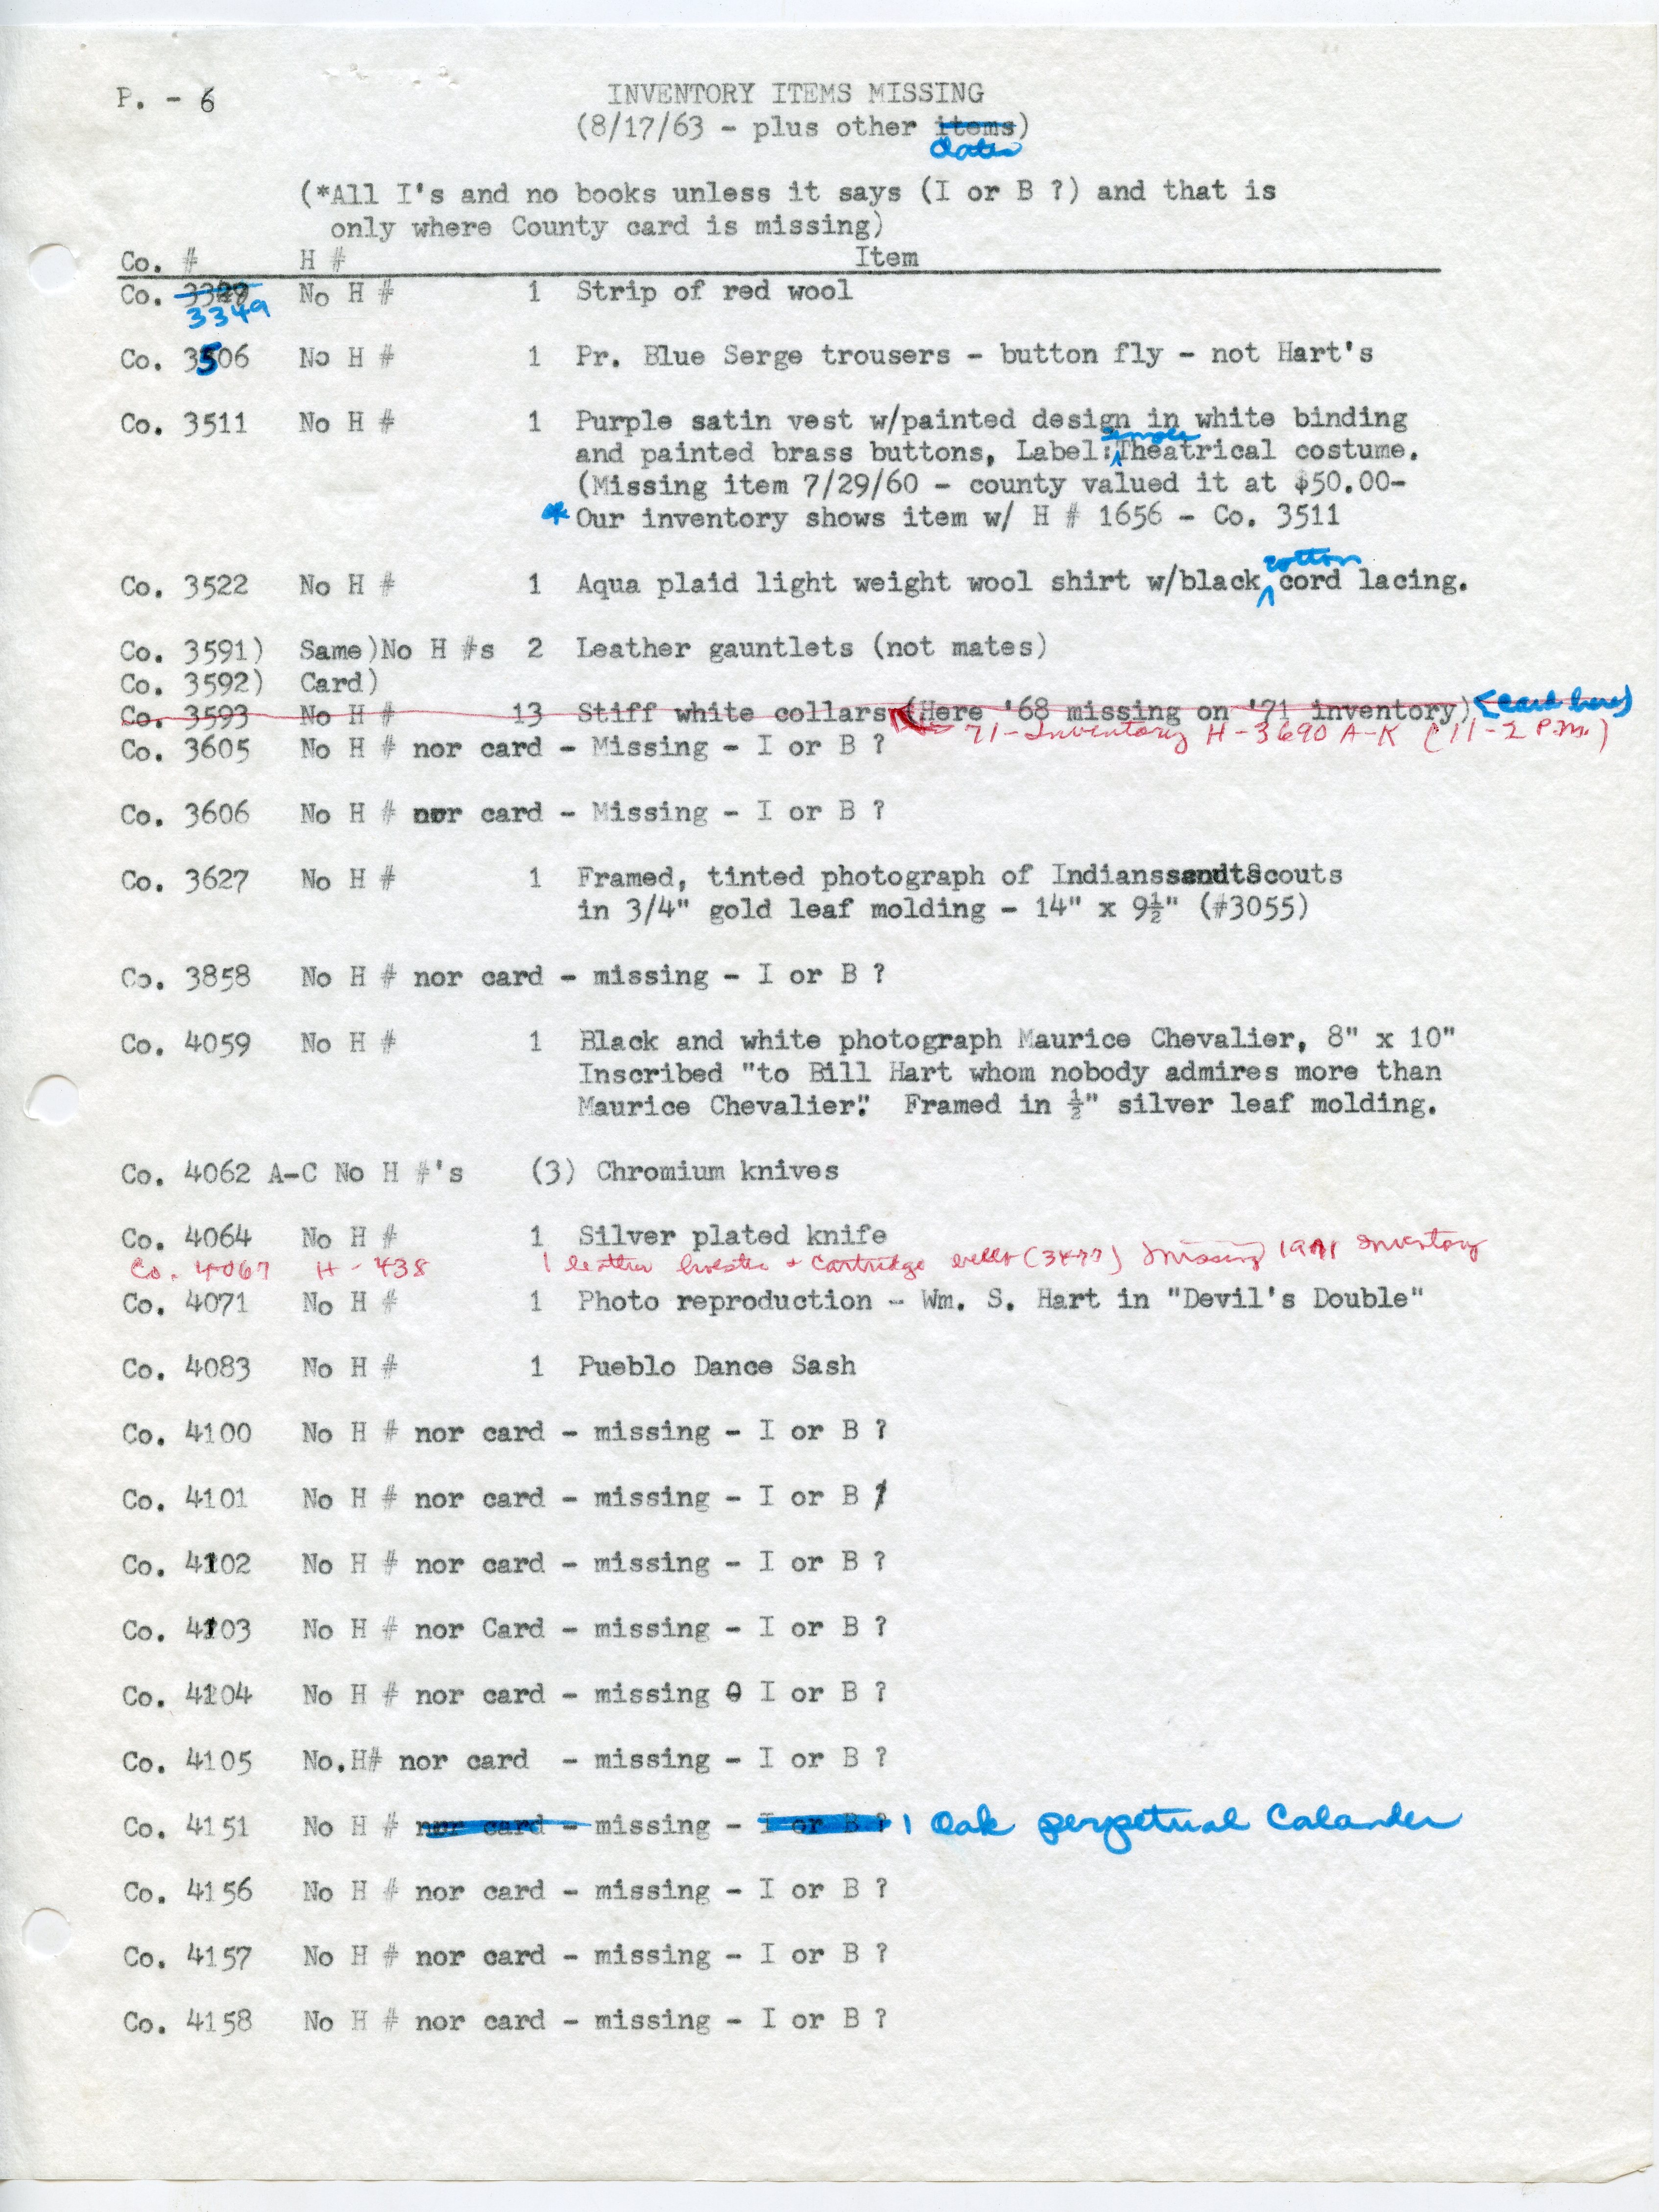 P. - 6
INVENTORY ITEMS MISSING
(8/17/63 - plus other items)
dates
(*All I's and no books unless it says (I or B ?) and that is
only where County card is missing)
Co. # H # Item
Co. 3329 No H # 1 Strip of red wool
3349
Co. 3506 No H # 1 Pr. Blue Serge trousers - button fly - not Hart's
Co. 3511 No H # 1 Purple satin vest w/painted design in white binding
and painted brass buttons, Label: Theatrical costume.
(Missing item 7/29/60 - county valued it at $50.00-
* Our inventory shows item w/ H # 1656 - Co. 3511
cotton
Co. 3522 No H # 1 Aqua plaid light weight wool shirt w/black cord lacing.
Co. 3591) Same)No H #s 2 Leather gauntlets (not mates)
Co. 3592) Card)
Co. 3593 No H # 13 Stiff white collars (Here '68 missing on '71 inventory) (card here)
71-Inventory H-3690 A-K (11-2 P.M.)
Co. 3605 No H # nor card - Missing - I or B ?
Co. 3606 No H # nor card - Missing - I or B ?
Co. 3627 No H # 1 Framed, tinted photograph of Indianssandtscouts
in 3/4" gold leaf molding - 14" x 9½" (#3055)
Co. 3858 No H # nor card - missing - I or B ?
Co. 4059 No H # 1 Black and white photograph Maurice Chevalier, 8" x 10"
Inscribed "to Bill Hart whom nobody admires more than
Maurice Chevalier". Framed in ½" silver leaf molding.
Co. 4062 A-C No H #'s (3) Chromium knives
Co. 4064 No H # 1 Silver plated knife
Co. 4067 H - 438 1 leather holster & cartridge belt (3477) Missing 1971 Inventory
Co. 4071 No H # 1 Photo reproduction - Wm. S. Hart in "Devil's Double"
Co. 4083 No H # 1 Pueblo Dance Sash
Co. 4100 No H # nor card - missing - I or B ?
Co. 4101 No H # nor card - missing - I or B ?
Co. 4102 No H # nor card - missing - I or B ?
Co. 4103 No H # nor Card - missing - I or B ?
Co. 4104 No H # nor card - missing 0 I or B ?
Co. 4105 No.H# nor card - missing - I or B ?
Co. 4151 No H # nor card - missing - I or B ? 1 Oak perpetual Calander
Co. 4156 No H # nor card - missing - I or B ?
Co. 4157 No H # nor card - missing - I or B ?
Co. 4158 No H # nor card - missing - I or B ?